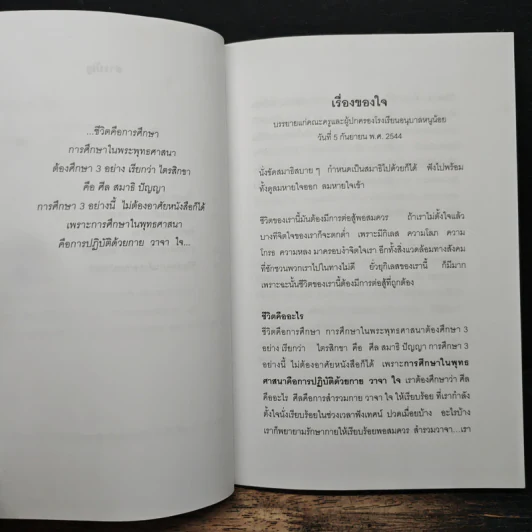 ...ชีวิตคือการศึกษา
การศึกษาในพระพุทธศาสนา
ต้องศึกษา 3 อย่าง เรียกว่า ไตรสิกขา
คือ ศีล สมาธิ ปัญญา
การศึกษา 3 อย่างนี้ ไม่ต้องอาศัยหนังสือก็ได้
เพราะการศึกษาในพุทธศาสนา
คือการปฏิบัติด้วยกาย วาจา ใจ...
เรื่องของใจ
บรรยายแก่คณะครูและผู้ปกครองโรงเรียนอนุบาลหนูน้อย
วันที่ 5 กันยายน พ.ศ. 2544
นั่งขัดสมาธิสบาย ๆ กำหนดเป็นสมาธิไปด้วยก็ได้ ฟังไปพร้อม
ทั้งดูลมหายใจออก ลมหายใจเข้า
ชีวิตของเรานี้มันต้องมีการต่อสู้พอสมควร ถ้าเราไม่ตั้งใจแล้ว
บางทีจิตใจของเราก็จะตกต่ำ เพราะมีกิเลส ความโลภ ความ
โกรธ ความหลง มาครอบงำจิตใจเรา อีกทั้งสิ่งแวดล้อมทางสังคม
ที่ชักชวนพวกเราไปในทางไม่ดี ยั่วยุกิเลสของเรานี้ ก็มีมาก
เพราะฉะนั้นชีวิตของเรานี้ต้องมีการต่อสู้ที่ถูกต้อง
ชีวิตคืออะไร
ชีวิตคือการศึกษา การศึกษาในพระพุทธศาสนาต้องศึกษา 3
อย่าง เรียกว่า ไตรสิกขา คือ ศีล สมาธิ ปัญญา การศึกษา 3
อย่างนี้ ไม่ต้องอาศัยหนังสือก็ได้ เพราะการศึกษาในพุทธ
ศาสนาคือการปฏิบัติด้วยกาย วาจา ใจ เราต้องศึกษาว่า ศีล
คืออะไร ศีลคือการสำรวมกาย วาจา ใจ ให้เรียบร้อย ที่เรากำลัง
ตั้งใจนั่งเรียบร้อยในช่วงเวลาฟังเทศน์ ปวดเมื่อยบ้าง อะไรบ้าง
เราก็พยายามรักษากายให้เรียบร้อยพอสมควร สำรวมวาจา...เรา